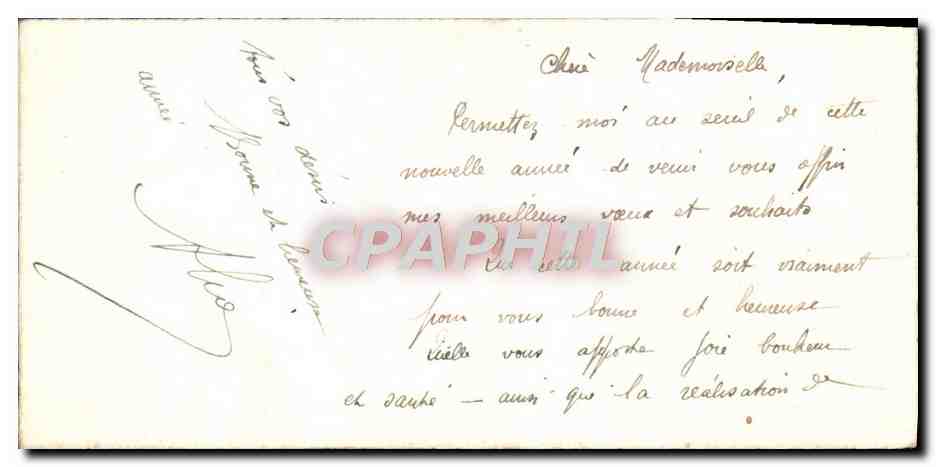 Chère Mademoiselle,
Permettez moi au seuil de cette
nouvelle année de venir vous offrir
mes meilleurs vœux et souhaits
Que cette année soit vraiment
pour vous bonne et heureuse
Quelle vous apporte joie bonheur
et santé — ainsi que la réalisation de
tous vos désirs
Bonne et heureuse
année
CPAPHIL